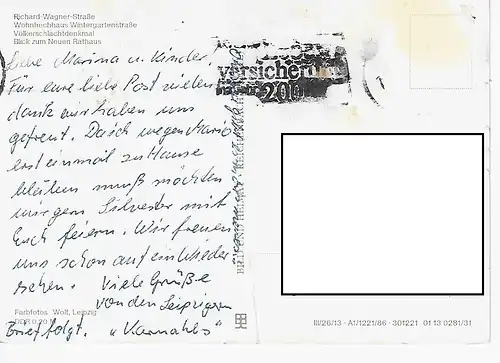 Richard-Wagner-Straße
Wohnhochhaus Wintergartenstraße
Völkerschlachtdenkmal
Blick zum Neuen Rathaus
Liebe Marina u. Kinder,
Für eure liebe Post vielen
dank wir haben uns
gefreut. Da ich wegen Mario
erst einmal zu Hause
bleiben muß möchten
wir gern Silvester mit
Euch feiern. Wir freuen
uns schon auf ein Wieder
sehen. Viele Grüße
von den Leipzigern
Brief folgt.
Farbfotos: Wolf, Leipzig
DDR 0,20 M
versicherung
200
BILD UND HEIMAT
III/26/13 · A1/1221/86 · 301221 01 13 0281/31